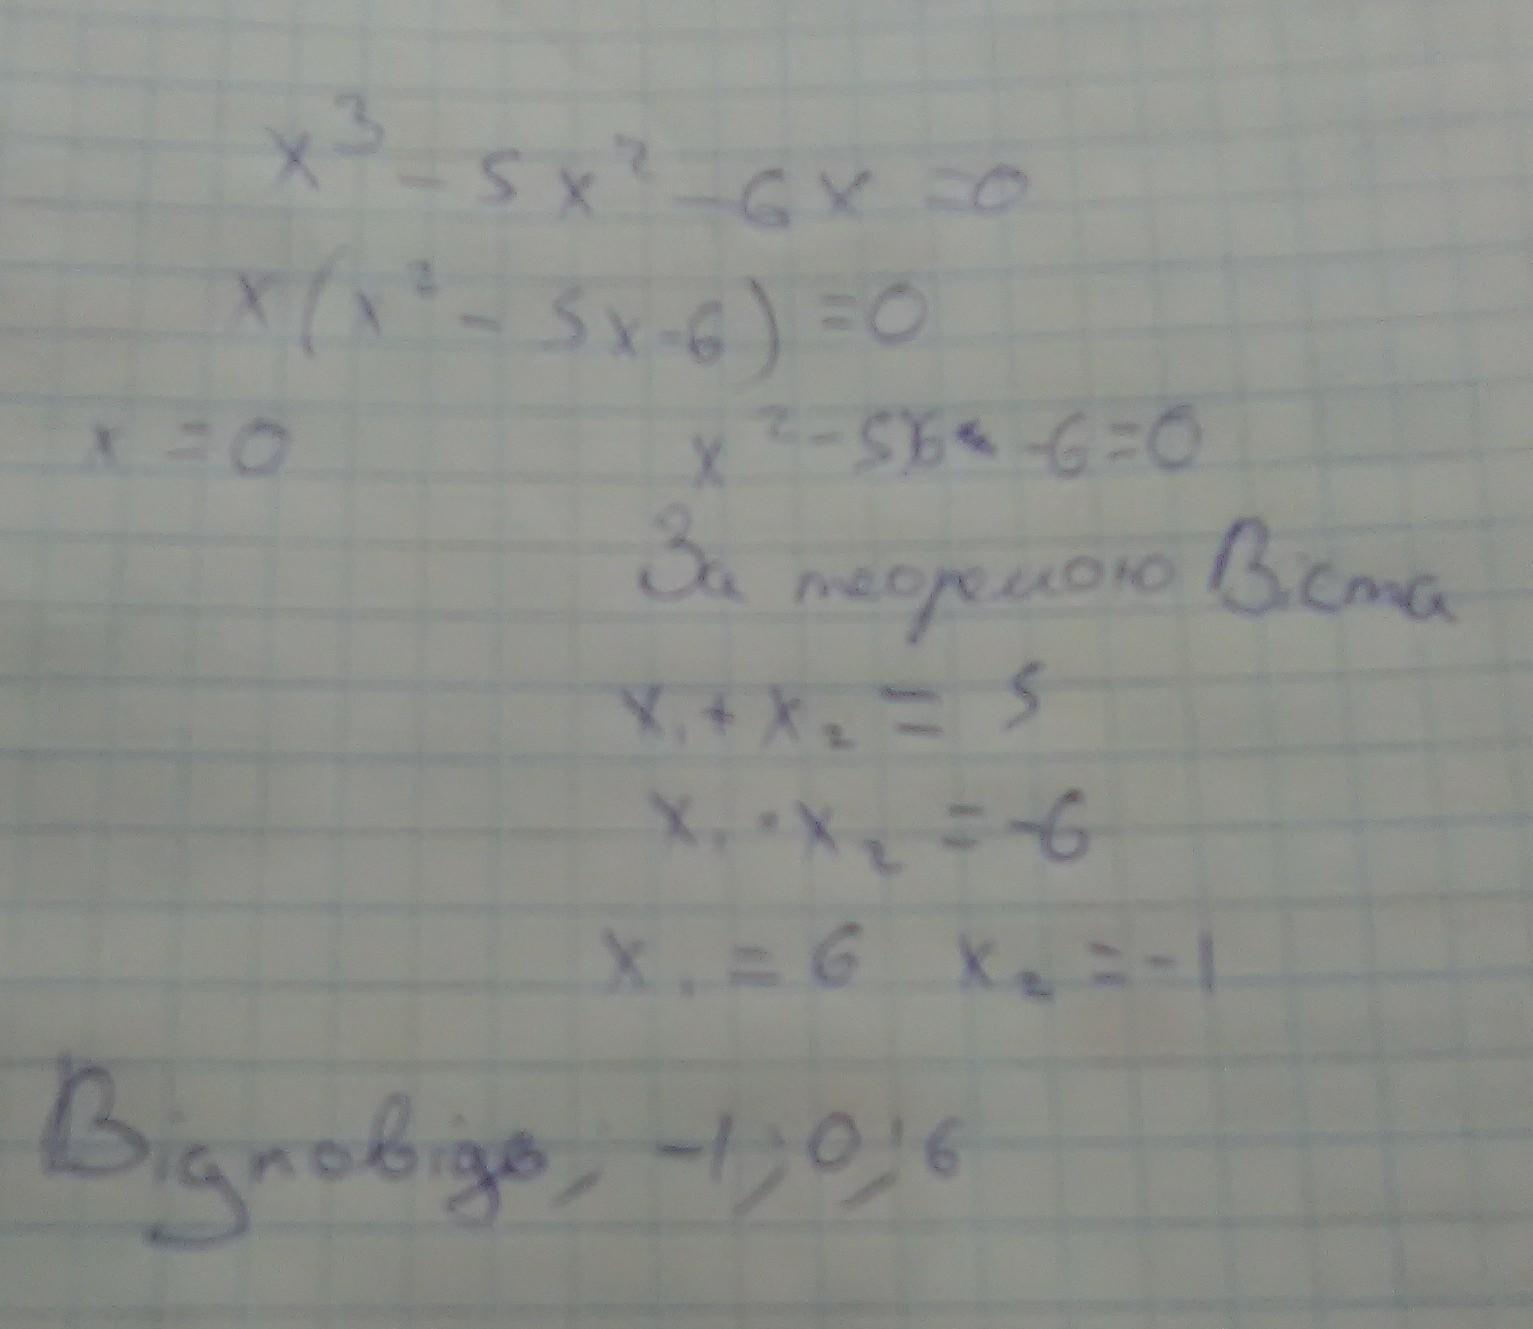 x³ - 5x² - 6x = 0
x(x² - 5x - 6) = 0
x = 0 x² - 5x - 6 = 0
За теоремою Вієта
x₁ + x₂ = 5
x₁ · x₂ = -6
x₁ = 6 x₂ = -1
Відповідь, -1; 0; 6